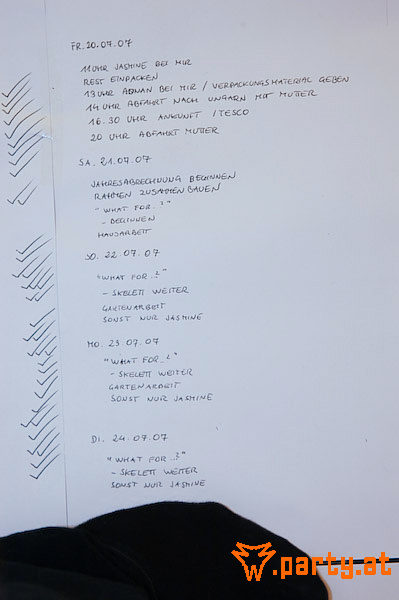 FR. 20.07.07
11 UHR JASMINE BEI MIR
REST EINPACKEN
13 UHR ADNAN BEI MIR / VERPACKUNGSMATERIAL GEBEN
14 UHR ABFAHRT NACH UNGARN MIT MUTTER
16.30 UHR ANKUNFT / TESCO
20 UHR ABFAHRT MUTTER
SA. 21.07.07
JAHRESABRECHNUNG BEGINNEN
RAHMEN ZUSAMMENBAUEN
"WHAT FOR..?"
- BEGINNEN
HAUSARBEIT
SO. 22.07.07
"WHAT FOR..?"
- SKELETT WEITER
GARTENARBEIT
SONST NUR JASMINE
MO. 23.07.07
"WHAT FOR..?"
- SKELETT WEITER
GARTENARBEIT
SONST NUR JASMINE
DI. 24.07.07
"WHAT FOR..?"
- SKELETT WEITER
SONST NUR JASMINE
w.party.at